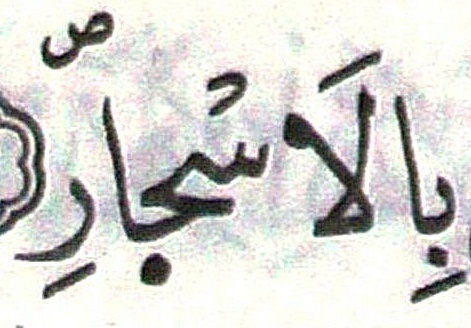 بِالَاسْجارِ ص